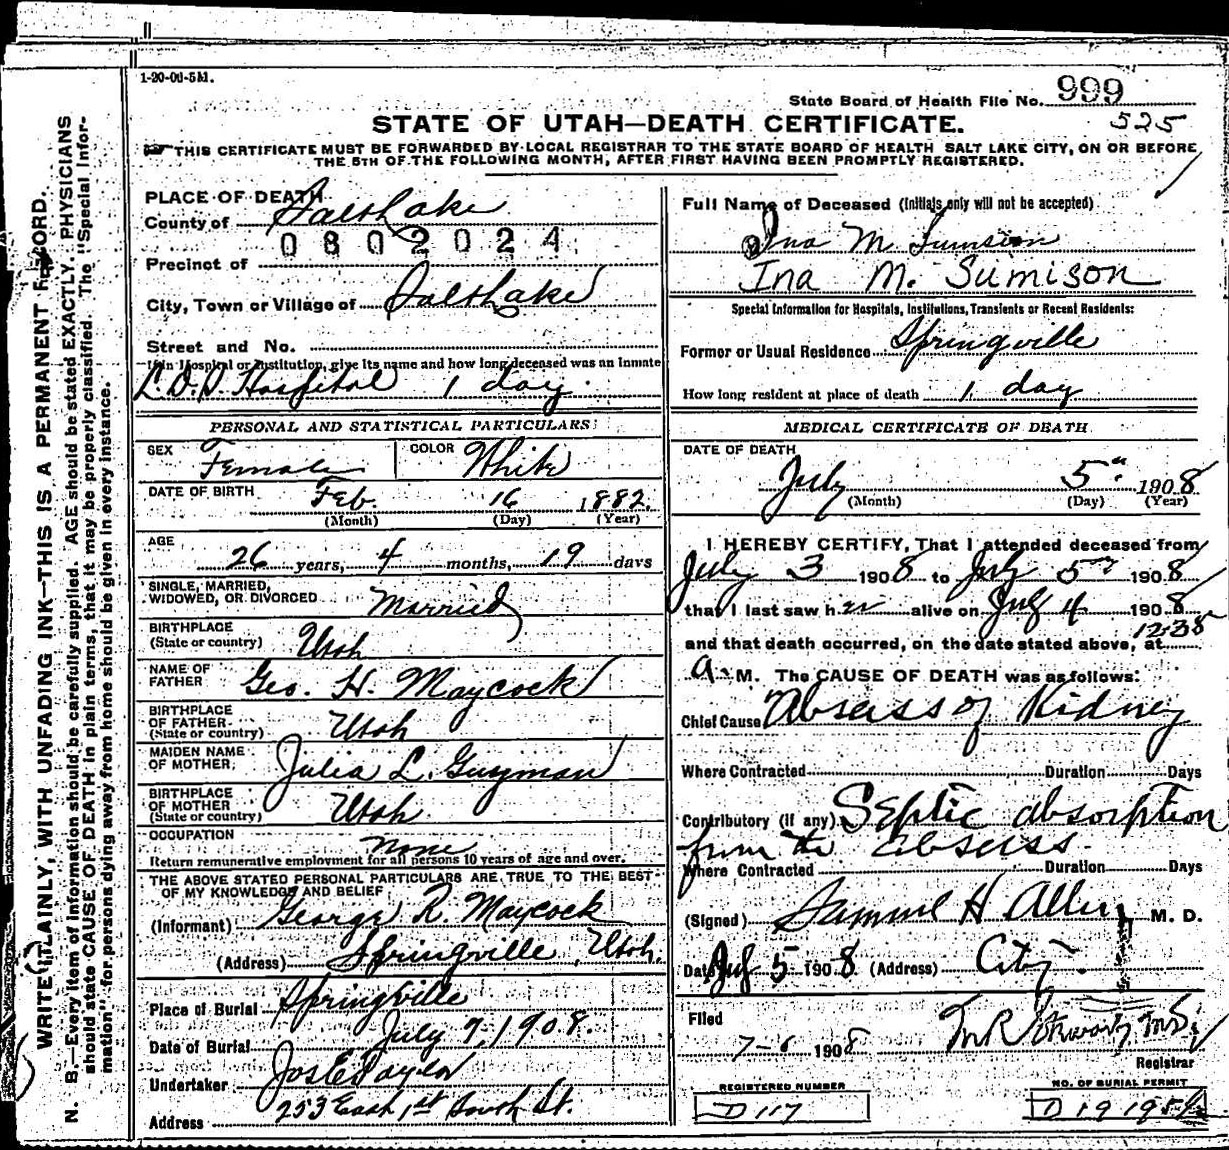 1-20-08-5M.
State Board of Health File No. 999
525
STATE OF UTAH—DEATH CERTIFICATE.
THIS CERTIFICATE MUST BE FORWARDED BY LOCAL REGISTRAR TO THE STATE BOARD OF HEALTH SALT LAKE CITY, ON OR BEFORE
THE 5TH OF THE FOLLOWING MONTH, AFTER FIRST HAVING BEEN PROMPTLY REGISTERED.
WRITE PLAINLY, WITH UNFADING INK—THIS IS A PERMANENT RECORD.
N. B.—Every item of information should be carefully supplied. AGE should be stated EXACTLY. PHYSICIANS
should state CAUSE OF DEATH in plain terms, that it may be properly classified. The "Special Infor-
mation" for persons dying away from home should be given in every instance.
PLACE OF DEATH
County of Salt Lake
0802024
Precinct of
City, Town or Village of Salt Lake
Street and No.
If in Hospital or Institution, give its name and how long deceased was an Inmate
L.D.S. Hospital 1 day.
PERSONAL AND STATISTICAL PARTICULARS
SEX Female COLOR White
DATE OF BIRTH Feb. 16 1882.
(Month) (Day) (Year)
AGE
26 years, 4 months, 19 days
SINGLE, MARRIED,
WIDOWED, OR DIVORCED Married
BIRTHPLACE
(State or country) Utah
NAME OF
FATHER Geo. H. Maycock
BIRTHPLACE
OF FATHER
(State or country) Utah
MAIDEN NAME
OF MOTHER Julia L. Guyman
BIRTHPLACE
OF MOTHER
(State or country) Utah.
OCCUPATION none
Return remunerative employment for all persons 10 years of age and over.
THE ABOVE STATED PERSONAL PARTICULARS ARE TRUE TO THE BEST
OF MY KNOWLEDGE AND BELIEF
(Informant) George R. Maycock
(Address) Springville, Utah.
Place of Burial Springville
Date of Burial July 7, 1908.
Undertaker Jos E Taylor
Address 253 East 1st South St.
Full Name of Deceased (Initials only will not be accepted)
Ina M Sumsion
Ina M. Sumison
Special Information for Hospitals, Institutions, Transients or Recent Residents:
Former or Usual Residence Springville
How long resident at place of death 1 day
MEDICAL CERTIFICATE OF DEATH
DATE OF DEATH
July 5th 1908
(Month) (Day) (Year)
I HEREBY CERTIFY, That I attended deceased from
July 3 1908 to July 5th 1908
that I last saw her alive on July 4 1908
and that death occurred, on the date stated above, at 12-35
a M. The CAUSE OF DEATH was as follows:
Chief Cause Absess of Kidney
Where Contracted Duration Days
Contributory (if any) Septic absorption
from the absess.
Where Contracted Duration Days
(Signed) Samuel H Allen M. D.
Date July 5 1908 (Address) City.
Filed
7-6 1908
Registrar
REGISTERED NUMBER
D 117
NO. OF BURIAL PERMIT